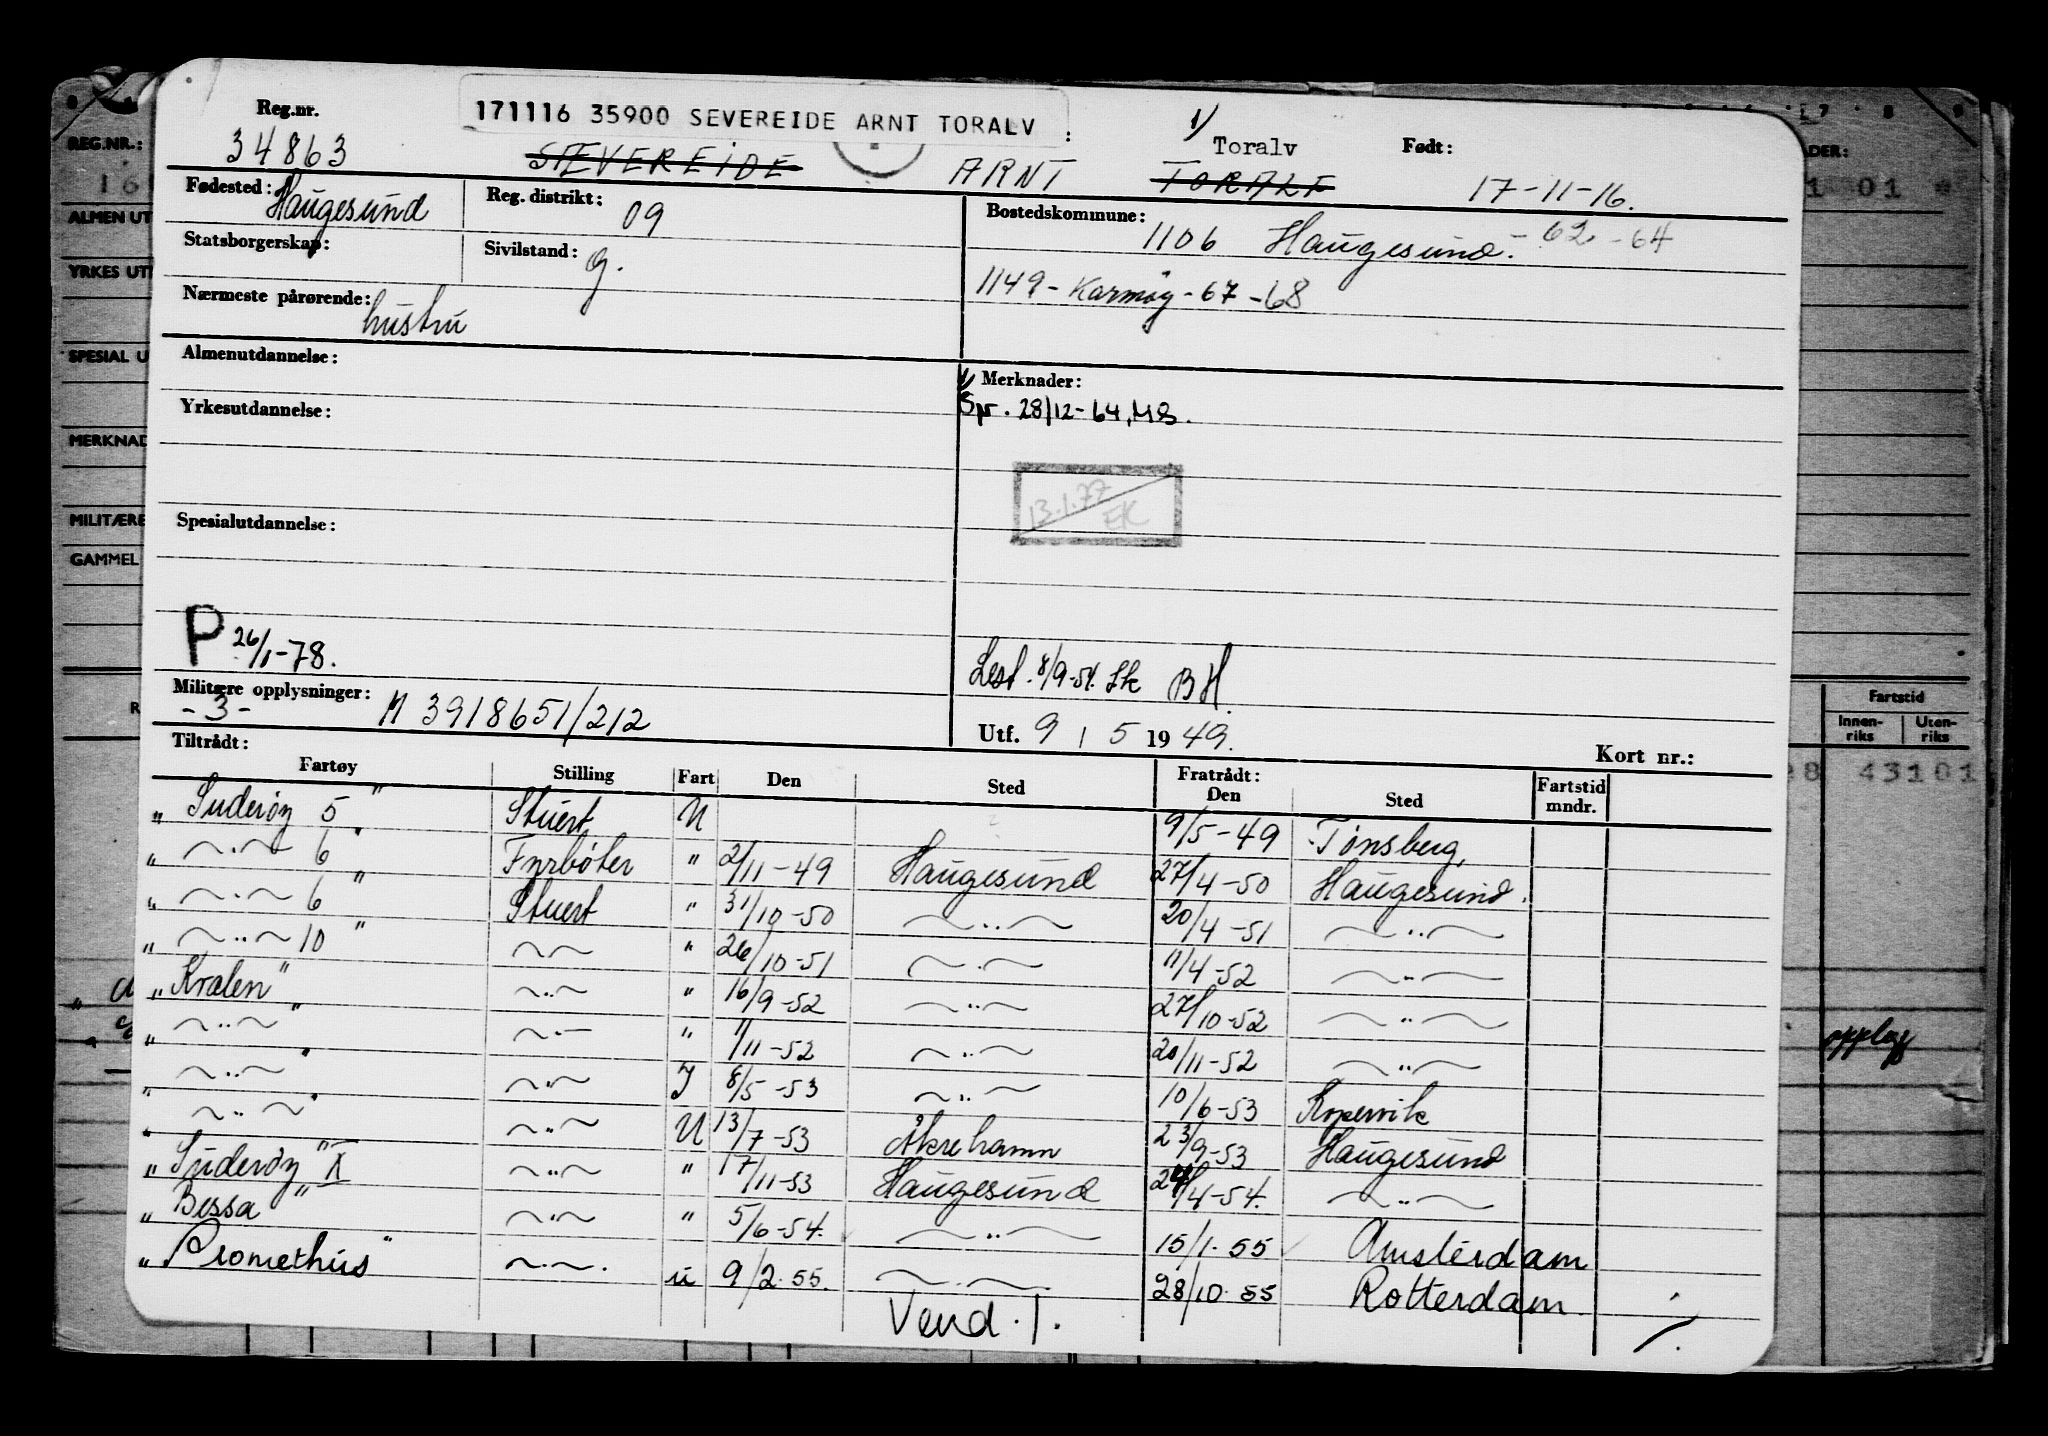 Reg.nr. 171116 35900 SEVEREIDE ARNT TORALV : 1) Toralv Født:
34863 STEVEREIDE ARNT TORALF 17-11-16.
Fødested: Haugesund Reg. distrikt: 09 Bostedskommune: 1106 Haugesund. - 62 - 64
Statsborgerskap: Sivilstand: g. 1149 - Karmøy - 67 - 68
Nærmeste pårørende: hustru
Almenutdannelse: 1) Merknader:
Yrkesutdannelse: Spr. 28/12-64, MB.
13.1.77
EK
Spesialutdannelse:
P 26/1-78. Lest. 8/9-54. Sk BH.
Militære opplysninger: M 3918651/212
-3- Utf. 9 / 5 1949.
Tiltrådt: Kort nr.:
Fartøy Stilling Fart Den Sted Fratrådt: Den Sted Fartstid mndr.
„ Suderøy 5 " Stuert U 9/5-49 Tønsberg,
„ ~·~ 6 " Fyrbøter " 2/11-49 Haugesund 27/4-50 Haugesund.
„ ~·~ 6 " Stuert " 31/10-50 ~··~ 20/4-51 ~··~
„ ~··~ 10 " ~~ " 26/10-51 ~·~ 11/4-52 ~··~
„ Kralen " ~··~ " 16/9-52 ~··~ 27/10-52 ~··~
„ ~··~ " ~·~ " 1/11-52 ~··~ 20/11-52 ~··~
„ ~··~ " ~··~ J 8/5-53 ~··~ 10/6-53 Kopervik
„ ~··~ " ~··~ U 13/7-53 Åkrehamn 23/9-53 Haugesund
„ Suderøy X " ~··~ " 17/11-53 Haugesund 24/4-54. ~··~
„ Bessa " ~··~ " 5/6-54. ~··~ 15/1.55 Amsterdam
„ Promethus " ~·~. u 9/2.55. ~·~ 28/10.55 Rotterdam
Vend.!
REG.NR.:
ALMEN UT
YRKES UT
SPESIAL U
MERKNAD
MILITÆRE
GAMMEL
Fartstid
Innen-riks Uten-riks
43101
opplag